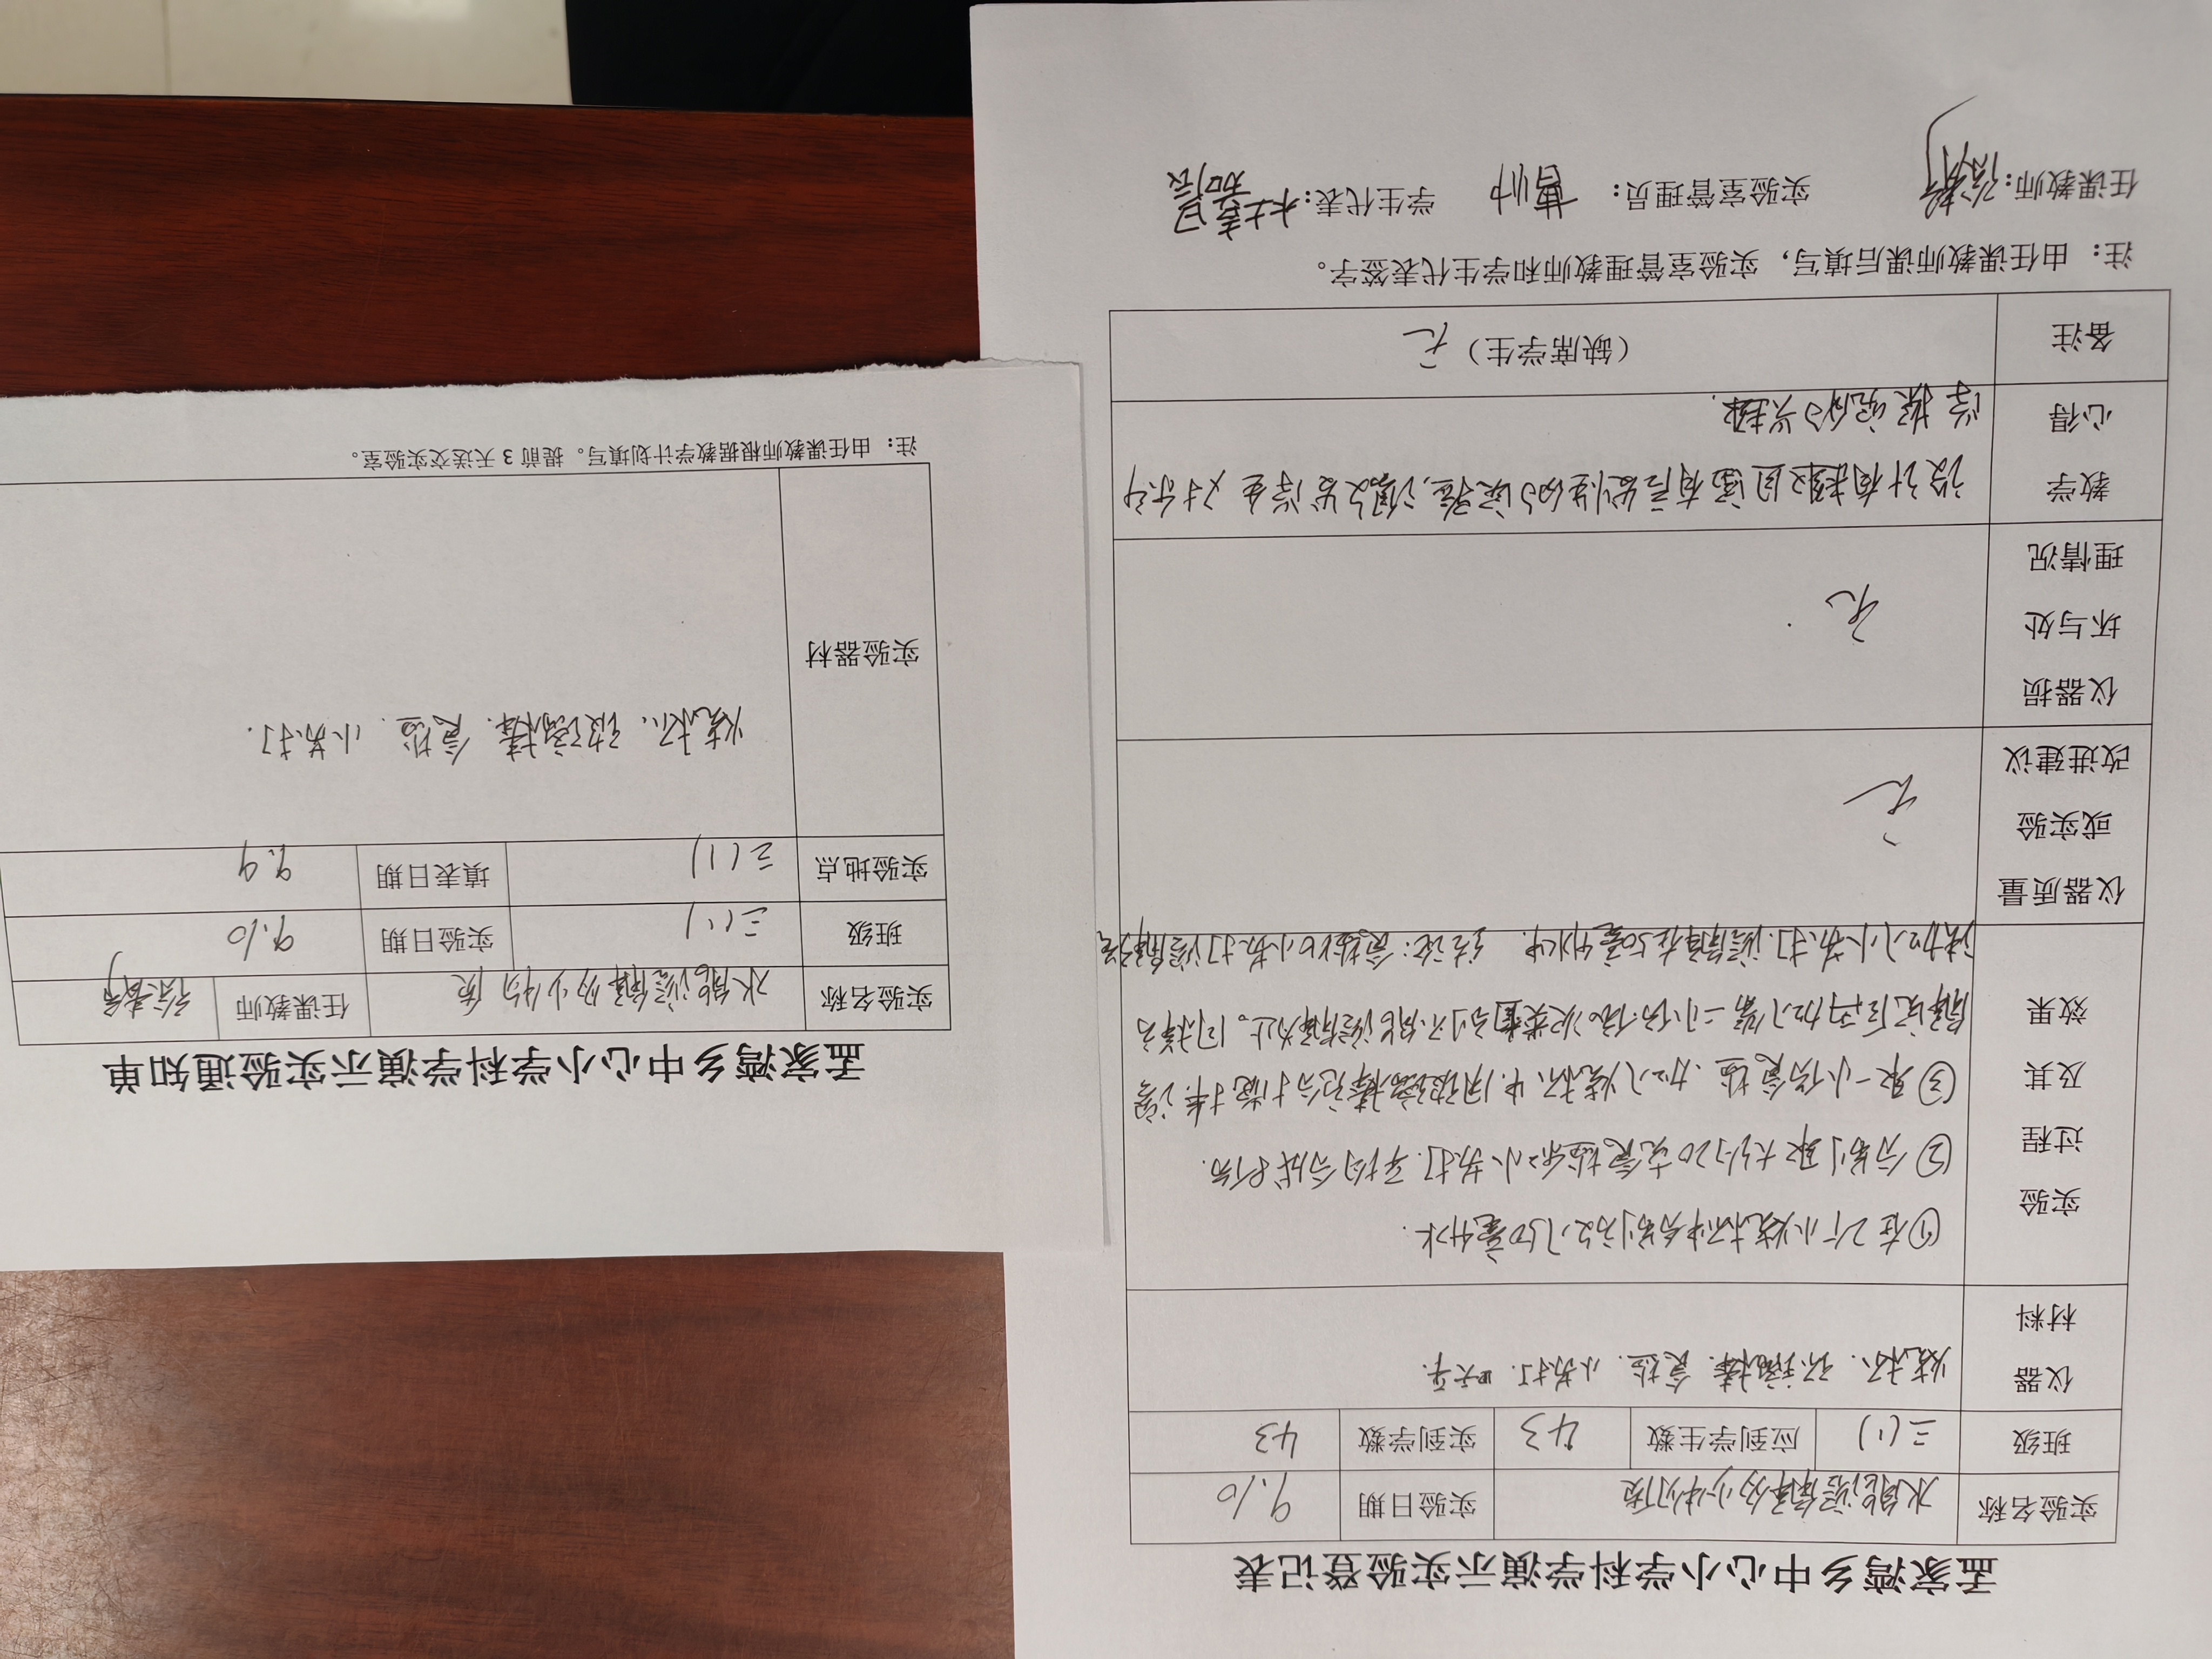 孟家湾乡中心小学科学演示实验登记表
实验名称 水能溶解多少物质 实验日期 9.10
班级 三(1) 应到学生数 43 实到学数 43
仪器材料 烧杯、玻璃棒、食盐、小苏打、天平.
实验过程及其效果
①在2个小烧杯中分别放入50毫升水.
②分别取大约20克食盐和小苏打.平均分成8份.
③取一小份食盐.加入烧杯中.用玻璃棒充分搅拌.溶
解完后再加入第二小份.依次类推到不能溶解为止。同样方
法加入小苏打.溶解在50毫升水中. 结论:食盐比小苏打溶解强
仪器质量或实验改进建议 无
仪器损坏与处理情况 无
教学心得 设计有梯且富有启发性的实验,激发学生对科
学探究的兴趣.
备注 (缺席学生) 无
注:由任课教师课后填写,实验室管理教师和学生代表签字。
任课教师: 实验室管理员: 学生代表:
孟家湾乡中心小学科学演示实验通知单
实验名称 水能溶解多少物质 任课教师
班级 三(1) 实验日期 9.10
实验地点 三(1) 填表日期 9.9
实验器材 烧杯、玻璃棒、食盐、小苏打.
注:由任课教师根据教学计划填写。提前3天送交实验室。